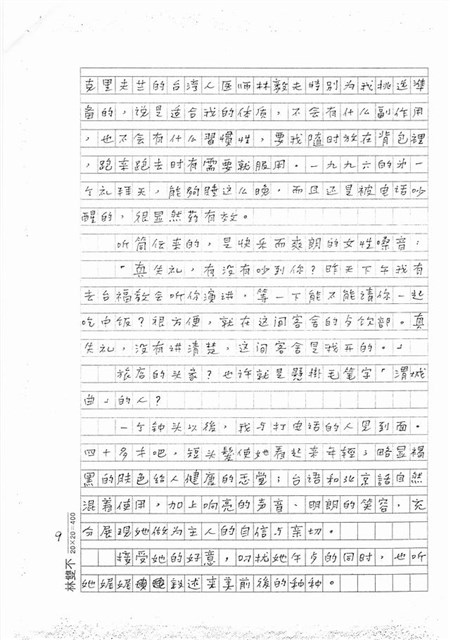 克里夫兰的台湾人医师林毅夫特别为我挑选準
备的，说是适合我的体质，不会有什么副作用
，也不会有什么習慣性，要我随时放在背包裡
，跑来跑去时有需要就服用。一九九六的第一
个礼拜天，能夠睡这么晚，而且还是被电话吵
醒的，很显然药有效。
听筒传来的，是快乐而爽朗的女性嗓音：
「真失礼，有沒有吵到你？昨天下午我有
去台福教会听你演讲，等一下能不能請你一起
吃中饭？很方便，就在这间客舍的夕饮部。真
失礼，沒有讲清楚，这间客舍是我开的。」
旅店的头家？也许就是懸掛毛笔字「渭城
曲」的人？
一个钟头以後，我与打电话的人見到面。
四十多才吧，短头髮使她看起来年轻；略显褐
黑的肤色给人健康的感觉；台语和北京話自然
混着使用，加上响亮的声音、明朗的笑容，充
分展现她做为主人的自信与亲切。
接受她的好意，叨扰她午夕的同时，也听
她娓娓叙述来美前後的种种。
9
林雙不
20×20=400